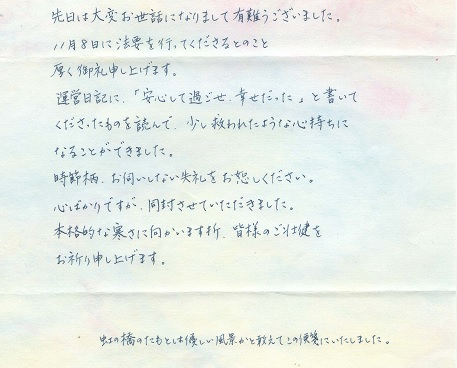 先日は大変お世話になりまして有難うございました。
11月8日に法要を行ってくださるとのこと
厚く御礼申し上げます。
運営日記に、「安心して過ごせ、幸せだった」と書いて
くださったものを読んで、少し救われたような心持ちに
なることができました。
時節柄、お伺いしない失礼をお恕しください。
心ばかりですが、同封させていただきました。
本格的な寒さに向かいます折、皆様のご壮健を
お祈り申し上げます。
虹の橋のたもとは優しい風景かと敢えてこの便箋にいたしました。